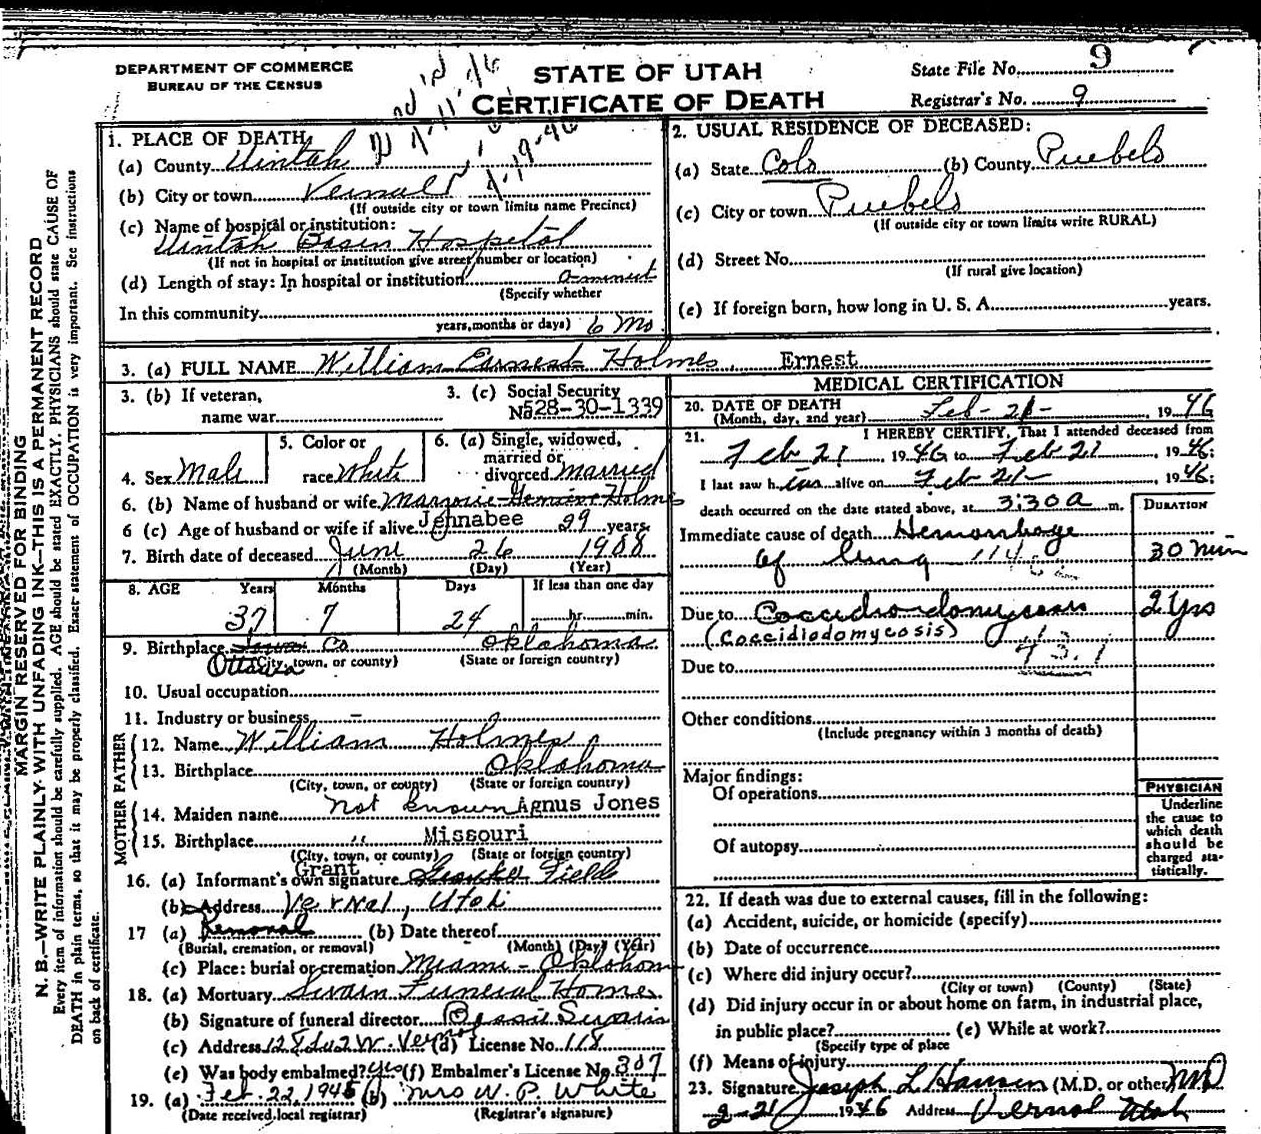 DEPARTMENT OF COMMERCE
BUREAU OF THE CENSUS
STATE OF UTAH
CERTIFICATE OF DEATH
State File No. 9
Registrar's No. 9
MARGIN RESERVED FOR BINDING
N. B.—WRITE PLAINLY WITH UNFADING INK—THIS IS A PERMANENT RECORD
Every item of information should be carefully supplied. AGE should be stated EXACTLY. PHYSICIANS should state CAUSE OF
DEATH in plain terms, so that it may be properly classified. Exact statement of OCCUPATION is very important. See instructions
on back of certificate.
1. PLACE OF DEATH
(a) County Uintah
(b) City or town Vernal
(If outside city or town limits name Precinct)
(c) Name of hospital or institution:
Uintah Basin Hospital
(If not in hospital or institution give street number or location)
(d) Length of stay: In hospital or institution
(Specify whether
In this community
years, months or days) 6 Mo.
2. USUAL RESIDENCE OF DECEASED:
(a) State Colo (b) County Pueblo
(c) City or town Pueblo
(If outside city or town limits write RURAL)
(d) Street No.
(If rural give location)
(e) If foreign born, how long in U. S. A. years.
3. (a) FULL NAME William Earnest Holmes Ernest
3. (b) If veteran,
name war
3. (c) Social Security
No. 528-30-1339
4. Sex Male
5. Color or
race White
6. (a) Single, widowed,
married or
divorced married
6. (b) Name of husband or wife Marjorie Holmes
6 (c) Age of husband or wife if alive Jennabee 29 years
7. Birth date of deceased June 26 1908
(Month) (Day) (Year)
8. AGE Years Months Days If less than one day
37 7 24 hr. min.
9. Birthplace Co Oklahoma
Ottawa (City, town, or county) (State or foreign country)
10. Usual occupation
11. Industry or business –
FATHER
12. Name William Holmes
13. Birthplace Oklahoma
(City, town, or county) (State or foreign country)
MOTHER
14. Maiden name not known Agnus Jones
15. Birthplace " Missouri
(City, town, or county) (State or foreign country)
Grant
16. (a) Informant's own signature Fields
(b) Address Vernal, Utah
17 (a) Removal (b) Date thereof
(Burial, cremation, or removal) (Month) (Day) (Year)
(c) Place: burial or cremation Miami - Oklahoma
18. (a) Mortuary Swain Funeral Home
(b) Signature of funeral director Bessie Swain
(c) Address Vernal (d) License No. 118
(e) Was body embalmed? yes (f) Embalmer's License No. 307
19. (a) Feb. 22, 1946 (b) Mrs W. P. White
(Date received local registrar) (Registrar's signature)
MEDICAL CERTIFICATION
20. DATE OF DEATH
(Month, day, and year) Feb - 21 - , 19 46
21. I HEREBY CERTIFY, That I attended deceased from
Feb 21 , 19 46 to Feb 21 , 19 46;
I last saw him alive on Feb 21 , 19 46;
death occurred on the date stated above, at 3:30 a m.
DURATION
Immediate cause of death Hemorrhage
of lung 30 min
Due to Coccidiodomycosis 2 yrs
(Coccidiodomycosis)
43.1
Due to
Other conditions
(Include pregnancy within 3 months of death)
Major findings:
Of operations
Of autopsy
PHYSICIAN
Underline
the cause to
which death
should be
charged sta-
tistically.
22. If death was due to external causes, fill in the following:
(a) Accident, suicide, or homicide (specify)
(b) Date of occurrence
(c) Where did injury occur?
(City or town) (County) (State)
(d) Did injury occur in or about home on farm, in industrial place,
in public place? (e) While at work?
(Specify type of place
(f) Means of injury
23. Signature Joseph L Hansen (M.D. or other) MD
2-21 19 46 Address Vernal Utah